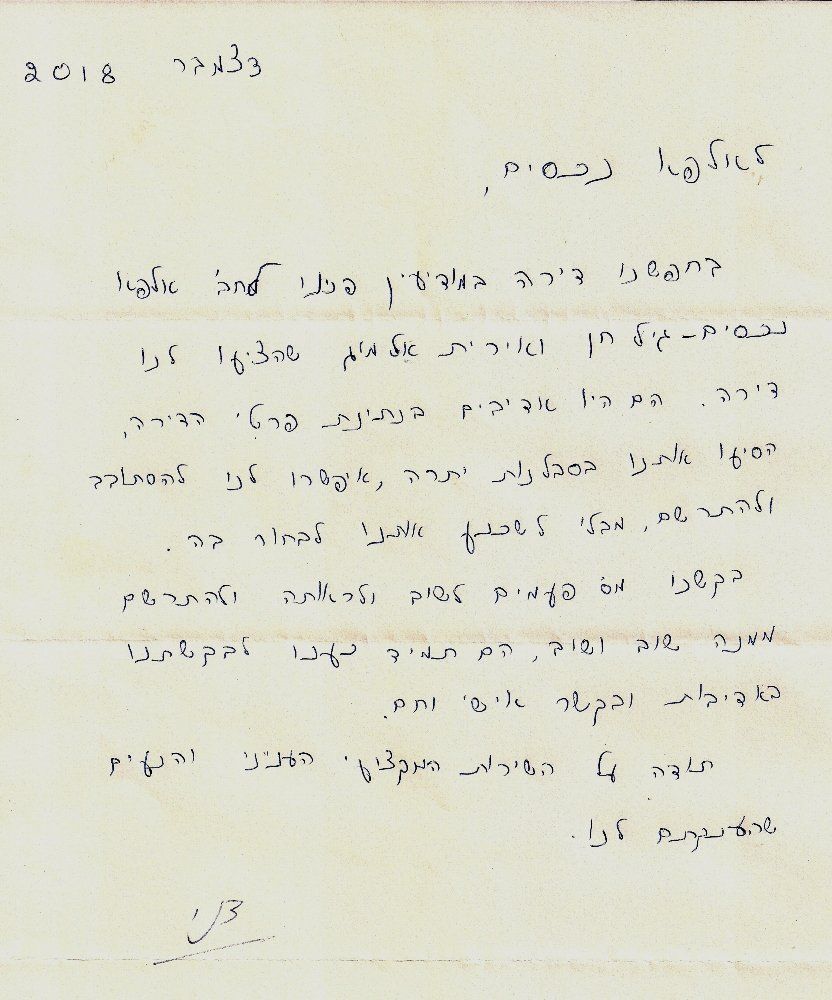 דצמבר 2018
לאלפא נכסים,
בחפשנו דירה במודיעין פנינו לחב' אלפא
נכסים - גיל חן ואירית אלמוג שהציעו לנו
דירה. הם היו אדיבים בנתינת פרטי הדירה,
הסיעו אותנו בסבלנות יתרה, איפשרו לנו להסתובב
ולהתרשם, מבלי לשכנע אותנו לבחור בה.
בקשנו מס' פעמים לשוב ולראותה ולהתרשם
ממנה שוב ושוב, הם תמיד נענו לבקשתנו
באדיבות ובקשר אישי וחם.
תודה על השירות המקצועי העניני והנעים
שהענקתם לנו.